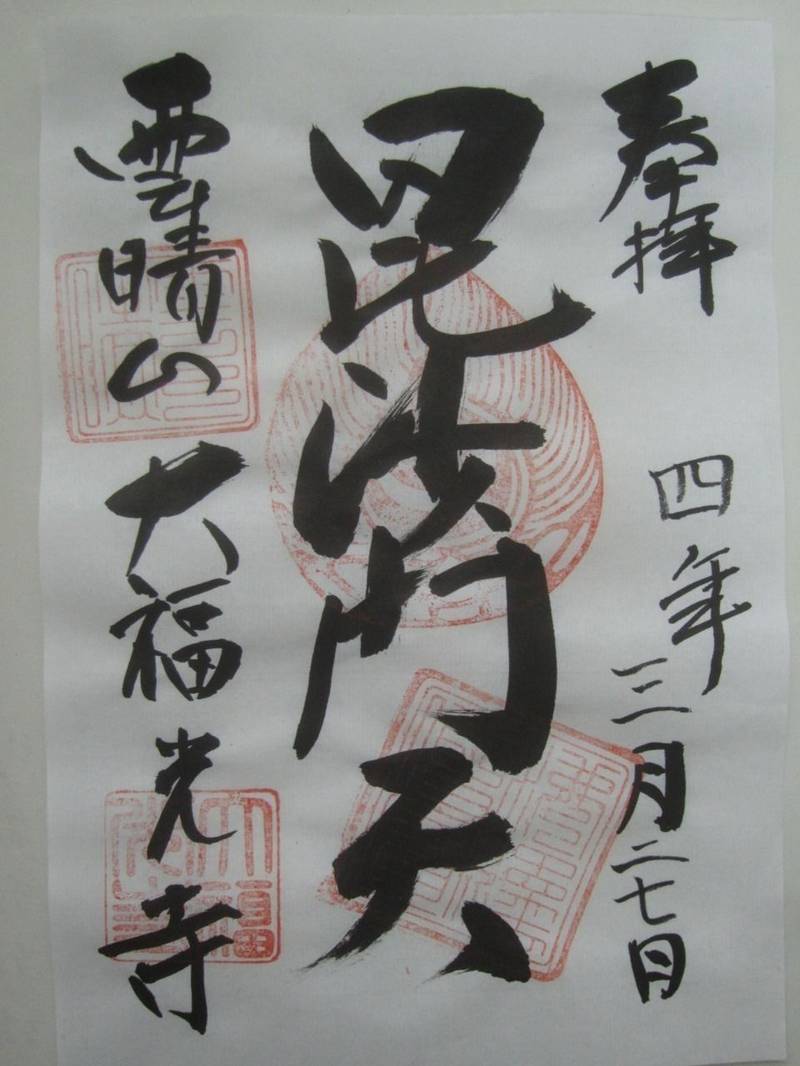 奉拝 四年三月二七日
毘沙門天
雲晴山 大福光寺